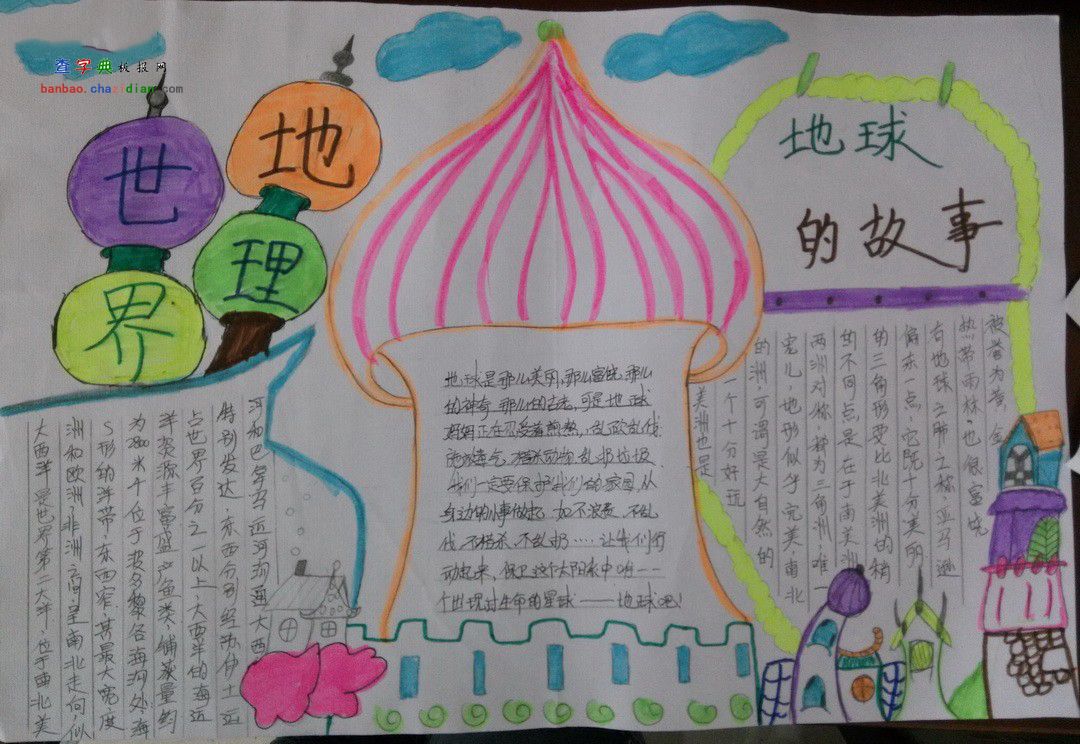 查字典板报网
banbao.chazidian.com
地理
世界
地球
的故事
地球是那么美丽,那么富饶,那么
的神奇,那么的古老,可是地球
妈妈正在忍受着煎熬,乱砍乱伐
施放毒气,捕杀动物,乱扔垃圾
我们一定要保护我们的家园,从
身边的小事做起,如不浪费,不乱
伐,不捕杀,不乱扔……让我们行
动起来,保卫这个太阳系中唯一一
个出现过生命的星球——地球吧!
美洲也是
一个十分好玩
的洲,可谓是大自然的
宠儿,地形似乎完美,南北
两洲对称,都为三角洲,唯一
的不同点是在于南美洲
的三角形要比北美洲的稍
偏东一点,它既十分美丽
右地球之肺之称亚马逊
热带雨林,也很富饶
被誉为黄金
大西洋是世界第二大洋,位于南北美
洲和欧洲,非洲之间呈南北走向,似
S形的洋带,东西窄,其最大宽度
为2800米个位于波多黎各海沟处,海
洋资源丰富盛产鱼类,捕渔量约
占世界百分之一以上,大西洋的海运
特别发达,东西分别经苏伊士运
河和巴拿马运河沟通大西